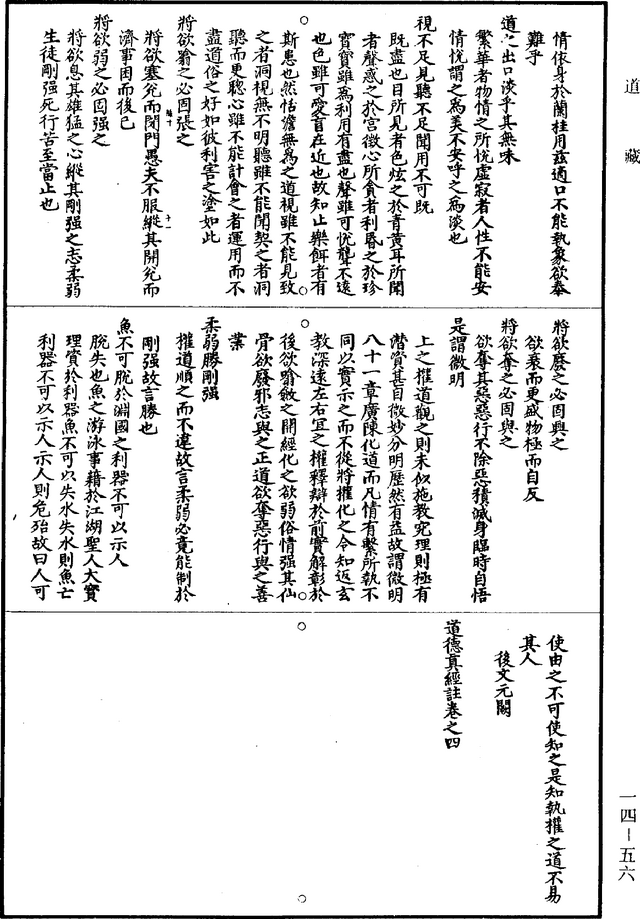 道藏
情依身於蘭桂用茲適口不能執象欲奉
難乎
道之出口淡乎其無味
繁華者物情之所悅虛寂者人性不能安
情悅謂之爲美不安呼之爲淡也
視不足見聽不足聞用不可既
既盡也目所見者色炫之於青黃耳所聞
者聲惑之於宮徵心所貪者利昏之於珍
寶寶雖爲利用有盡也聲雖可悅聾不遠
也色雖可愛盲在近也故知止樂餌者有
斯患也然恬惔無爲之道視雖不能見致
之者洞視無不明聽雖不能聞契之者洞
聽而更聰心雖不能計會之者運用而不
盡道俗之好如彼利害之塗如此
將欲翕之必固張之
將欲塞兌而閉門愚夫不服縱其開兌而
濟事困而後已
將欲弱之必固强之
將欲息其雄猛之心縱其剛强之志柔弱
生徒剛强死行苦至當止也
將欲廢之必固興之
欲衰而更盛物極而自反
將欲奪之必固與之
欲奪其惡惡行不除惡積滅身臨時自悟
是謂微明
上之權道觀之則未似施教究理則極有
潛資甚自微妙分明歷然有益故謂微明
八十一章廣陳化道而凡情有繫所執不
同以實示之而不從將權化之令知返玄
教深遠左右宜之權釋辯於前實解彰於
後欲翕斂之開經化之欲弱俗情强其仙
骨欲廢邪志與之正道欲奪惡行與之善
業
柔弱勝剛强
權道順之而不違故言柔弱必竟能制於
剛强故言勝也
魚不可脫於淵國之利器不可以示人
脫失也魚之游泳事藉於江湖聖人大寶
理賞於利器魚不可以失水失水則魚亡
利器不可以示人示人則危殆故曰人可
使由之不可使知之是知執權之道不易
其人
後文元闕
道德真經註卷之四
一四－五六